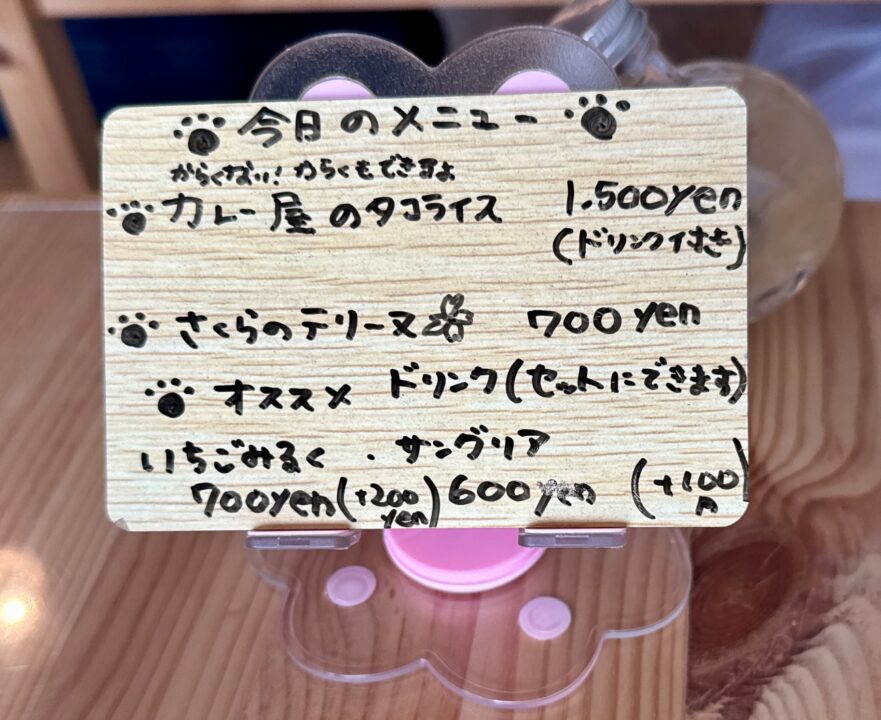 今日のメニュー
からくない！からくもできますよ
カレー屋のタコライス 1.500yen
(ドリンク付き)
さくらのテリーヌ 700yen
オススメ ドリンク(セットにできます)
いちごみるく ・サングリア
700yen(+200yen) 600yen (+100円)